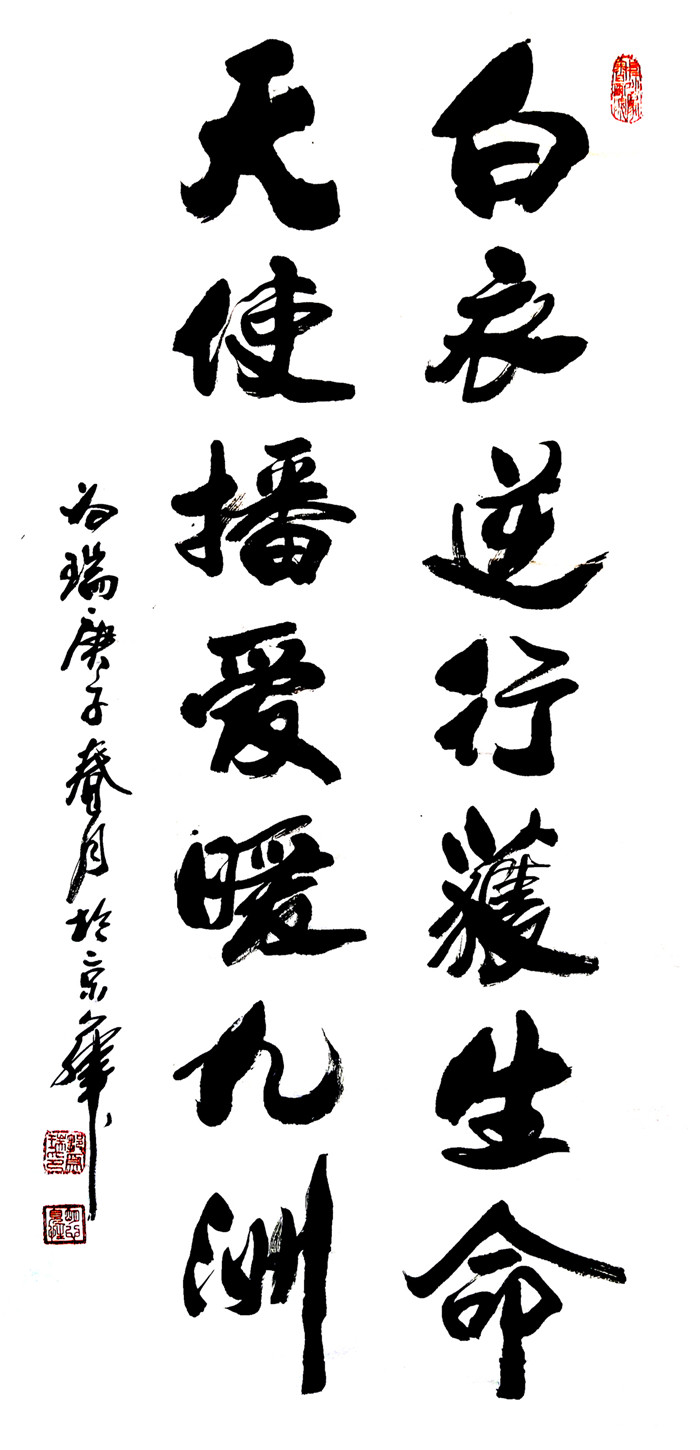 白衣逆行護生命
天使播爱暖九洲
为瑞庚子春月於京華